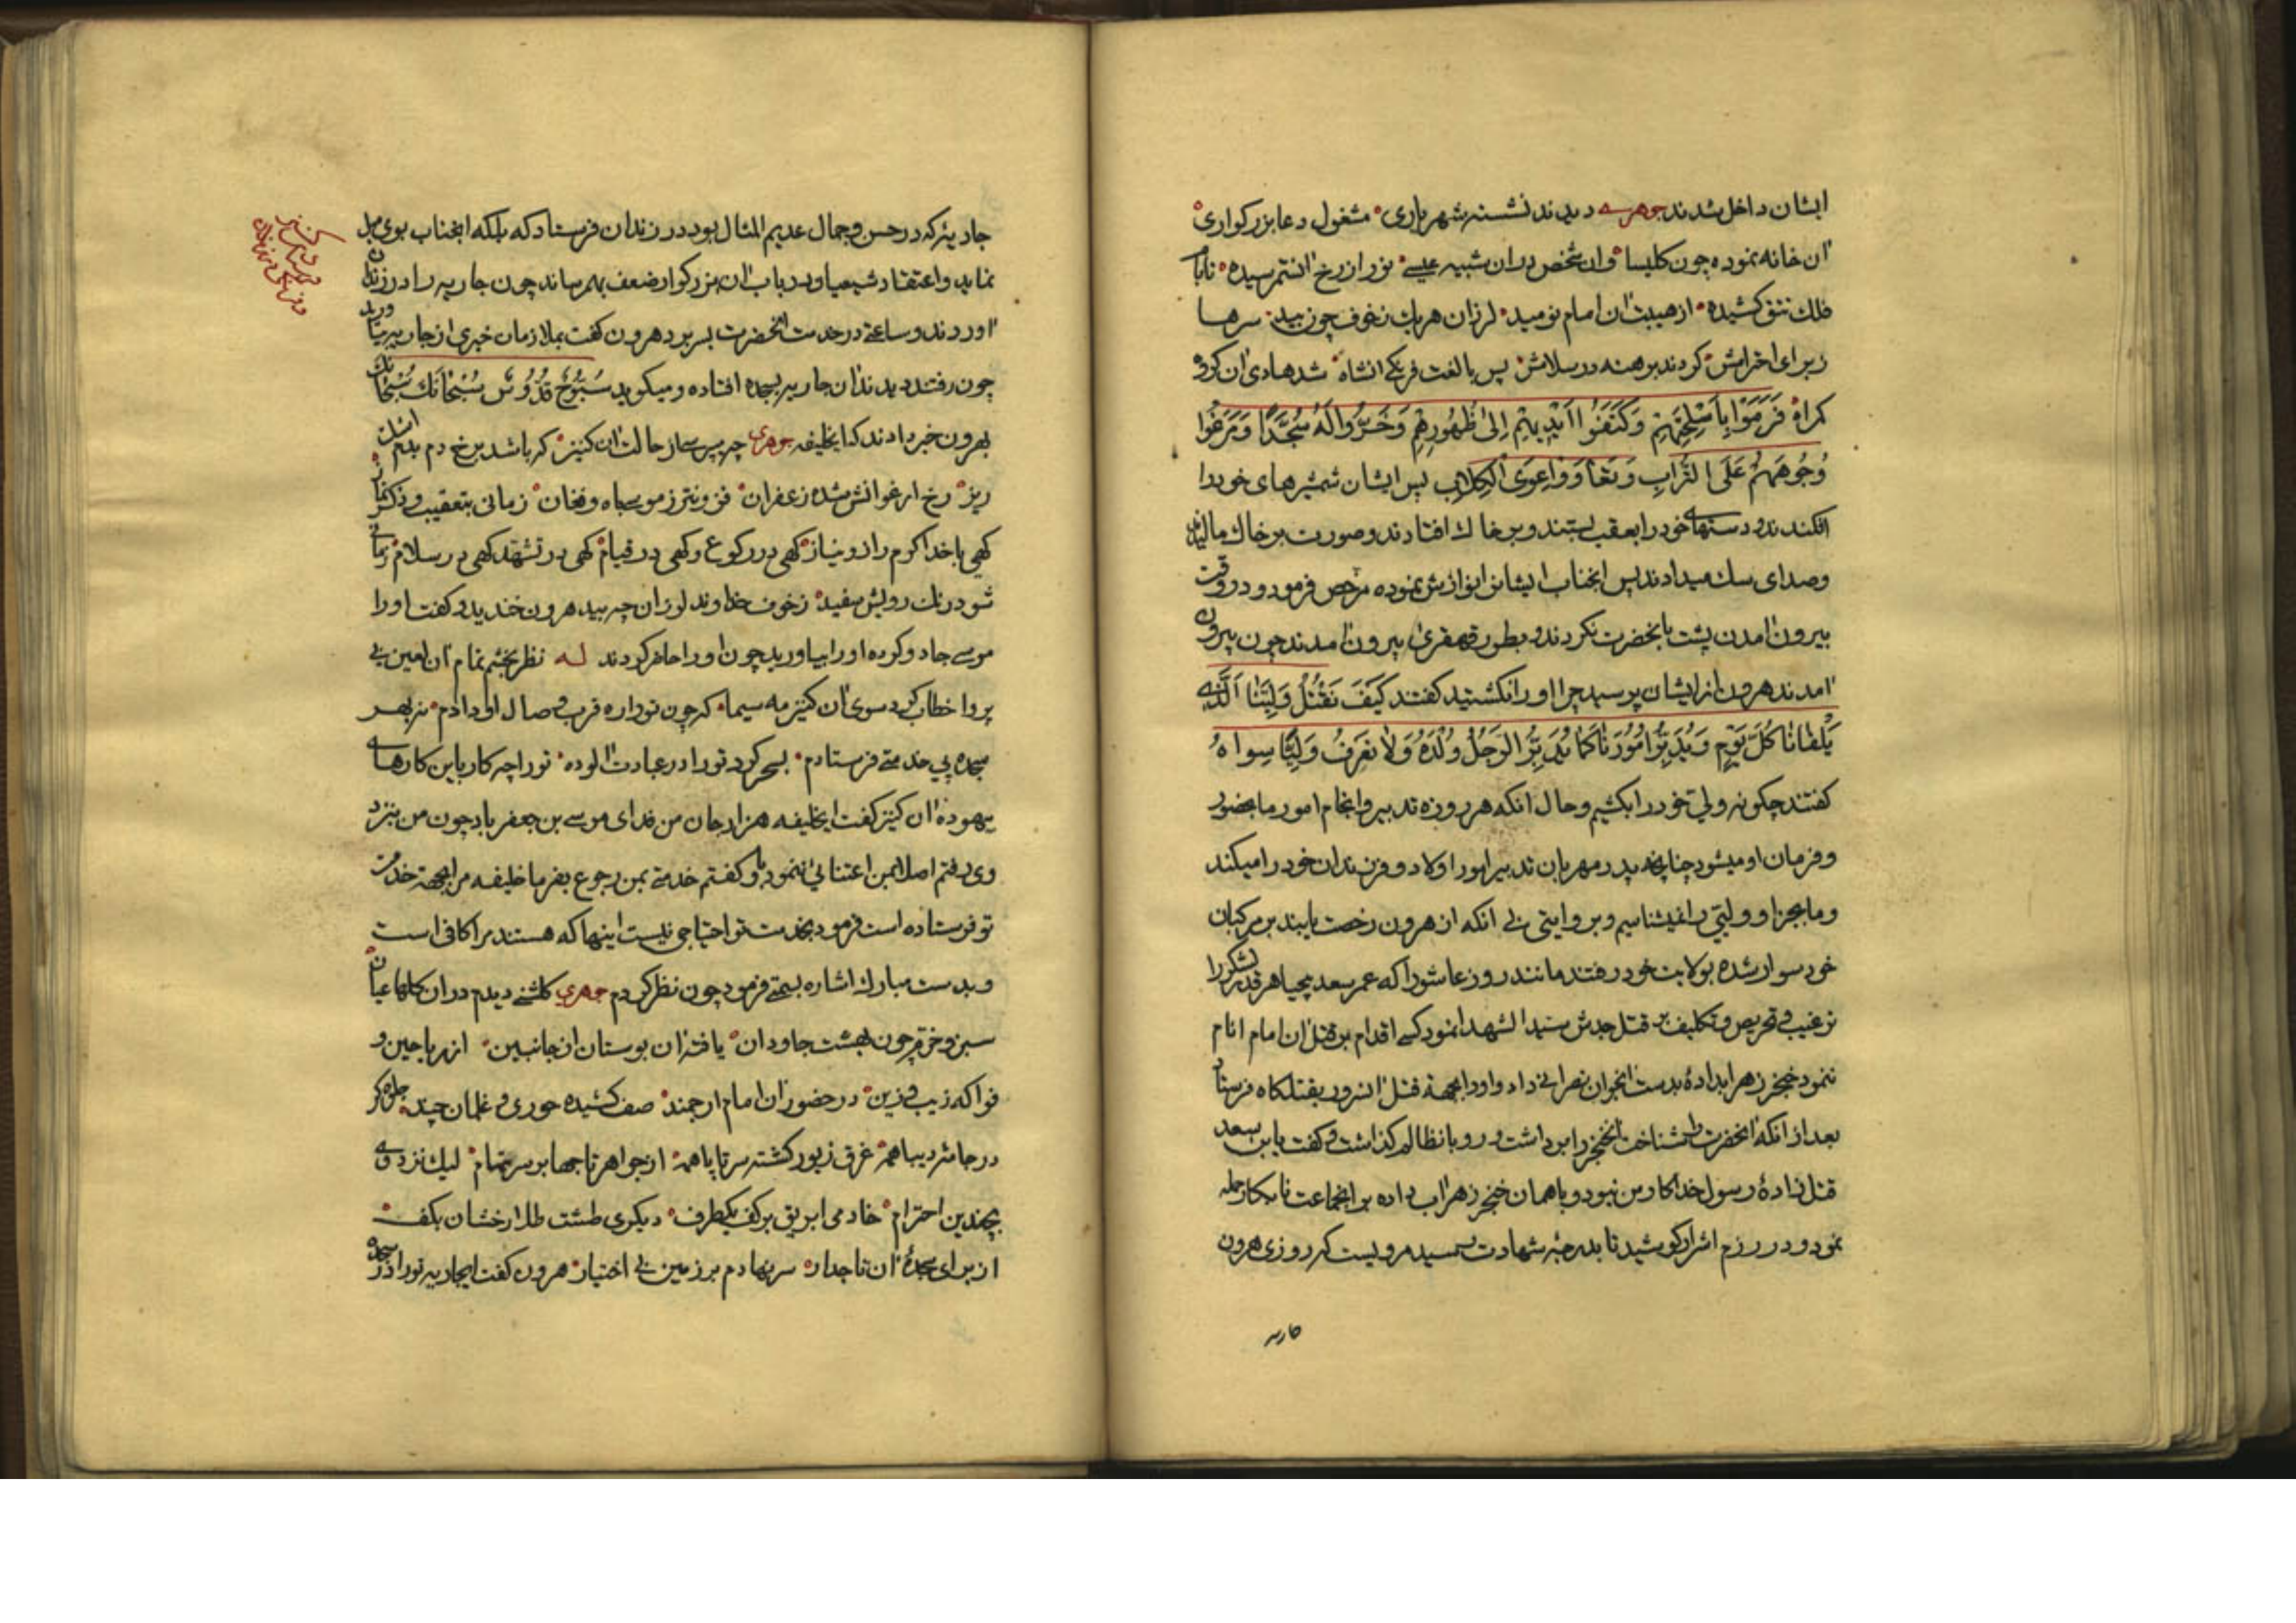 ایشان داخل شدند جوهری دیدند نشسته شهریاری مشغول دعا بزرکواری
ان خانه نموده چون کلیسا وان شخص دران شبیه عیسی نور از رخ انستم رسیده تابا
فلک تتق کشیده از هیبت ان امام نومید لرزان هریک ز خوف چون بید سرها
زبرای احترامش کردند برهنه در سلامش پس با لغت فرنکی انشاه شد هادی ان کروه
کراه فَرَمَوْا بِاَسْلِحَتِهِمْ وَکَتَفَوُا اَیْدِیهِمْ اِلیٰ ظُهُورِهِمْ وَخَرُّوا لَهُ سُجَّدًا وَمَرَغُوا
وُجُوهَهُمْ عَلَی التُّرَابِ وَ عَوَی الْکِلَابِ پس ایشان شمشیرهای خود را
افکندند و دستهای خود را بعقب بستند و بر خاک افتادند و صورت بر خاک مالیدند
وصدای سک میدادند پس انجناب ایشان را نوازش نموده مرخص فرمود و در وقت
بیرون امدن پشت بانحضرت نکردند و بطور قهقری بیرون امدند چون بیرون
امدند هرون از ایشان پرسید چرا او را نکشتید کفتند کَیْفَ نَقْتُلُ وَلِیَّنَا اَلَّذِی
یَلْقَانَا کُلَّ یَوْمٍ وَیُدَبِّرُ اُمُوْرَنَا کَمَا یُدَبِّرُ الرَجُلُ وُلْدَهُ وَلَا نَعْرِفُ وَلِیًّا سِوَاهُ
کفتند چکونه ولی خود را بکشیم و حال انکه هر روزه تدبیر و انجام امور ما بحضور
و فرمان او میشود چنانچه پدر مهربان تدبیر امور اولاد و فرزندان خود را میکند
و ما بجز او ولیّی را نمیشناسیم و بروایتی بی انکه از هرون رخصت یابند بر مرکبان
خود سوار شده بولایت خود رفتند مانند روز عاشورا که عمر سعد بیحیا هر قدر لشکر را
ترغیب و تحریص و تکلیف بر قتل جدش سید الشهدا نمود کسی اقدام بر قتل ان امام انام
ننمود خنجر زهر ابداده بدست نصرانی داد و او را بجهة قتل انسرور بقتلکاه فرستاد
بعد از انکه انحضرت را شناخت انخنجر را برداشت و رو بانظالم کذاشت و کفت یابن سعد
قتل زادهٔ رسول خدا کار من نبود و با همان خنجر زهراب داده بر انجماعت نابکار حمله
نمود و در رزم اشرار کوشید تا بدرجهٔ شهادت رسید مرویست که روزی هرون
جاریه
جاریهٔ که در حسن و جمال عدیم المثال بود در زندان فرستاد که بلکه انجناب بوی میل
نماید و اعتقاد شیعیان او در باب ان بزرکوار ضعف بهم رساند چون جاریه را در زندان
اوردند و ساعتی در خدمت انحضرت بسر برد هرون کفت بملازمان خبری از جاریه بیاورید
چون رفتند دیدند ان جاریه بسجده افتاده و میکوید سُبُّوْحٌ قُدُّوْسٌ سُبْحَانَکَ سُبْحَانَکَ
بهرون خبر دادند که ایخلیفه جوهری چه پرسی از حالت ان کنیز که باشد برخ دم بدم اشک
ریز رخ ارغوانش شده زعفران فزونتر ز موسی باه و فغان زمانی بتعقیب و ذکر
کهی با خدا کرم راز و نیاز کهی در رکوع و کهی در قیام کهی در تشهد کهی در سلام زمانی
شود رنک رویش سفید ز خوف خداوند لرزان چه بید هرون خندید و کفت او را
موسی جادو کرده او را بیاورید چون او را حاضر کردند له نظر بخشم تمام ان لعین بی
پروا خطاب کرد سوی ان کنیز مه سیما که چون تو را ره قرب و صال او دادم نه بهر
سجده پی خدمتی فرستادم بسحر کرد تو را در عبادت الوده تو را چه کار باین کارهای
بیهوده ان کنیز کفت ایخلیفه هزار جان من فدای موسی بن جعفر باد چون من بنزد
وی رفتم اصلا بمن اعتنائی ننمود باو کفتم خدمتی بمن رجوع بفرما خلیفه مرا بجهة خدمت
تو فرستاده است فرمود بخدمت تو احتیاجی نیست اینها که هستند مرا کافی است
و بدست مبارک اشاره بسمتی فرمود چون نظر کردم جوهری کلشنی دیدم دران کلها عیان
سبز و خرم چون بهشت جاودان یافته ان بوستان از جانبین از ریاحین و
فواکه زیب و زین در حضور ان امام ارجمند صف کشیده حوری و غلمان چند جلوه کر
در جامهٔ دیبا همه غرق زیور کشته سر تا پا همه از جواهر تاجها بر سر تمام لیک نزد وی
بچندین احترام خادمی ابریق بر کف یکطرف دیکری طشت طلا رخشان بکف
از برای سجدهٔ ان تاجدار سر نهادم بر زمین بی اختیار هرون کفت ایجاریه تو را در سجده